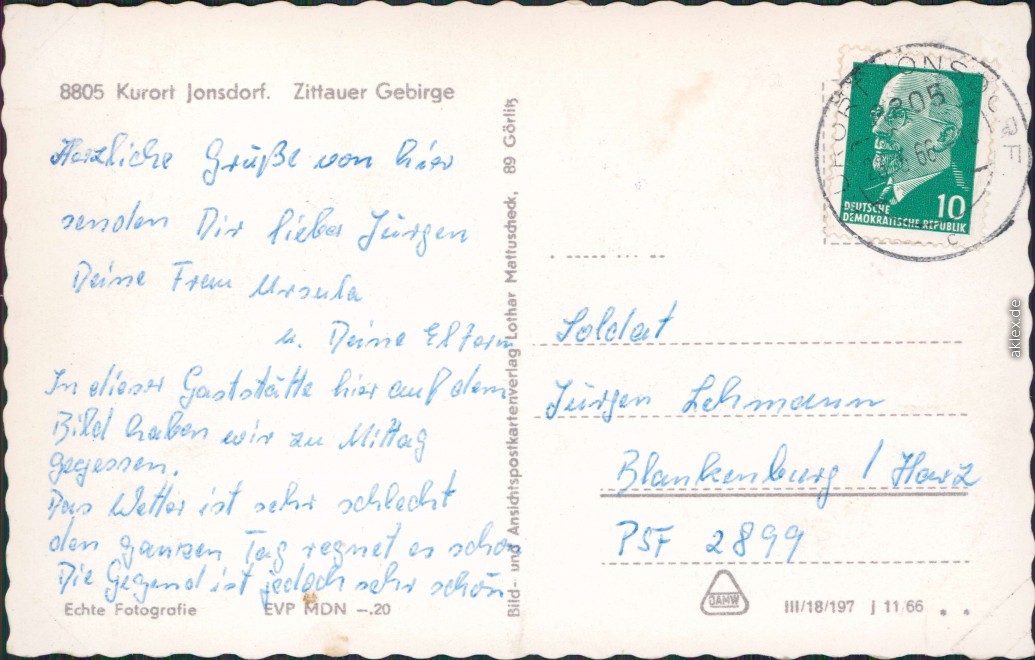 8805 Kurort Jonsdorf. Zittauer Gebirge
Herzliche Grüße von hier
senden Dir lieber Jürgen
Deine Frau Ursula
u. Deine Eltern
In dieser Gaststätte hier auf dem
Bild haben wir zu Mittag
gegessen.
Das Wetter ist sehr schlecht
den ganzen Tag regnet es schon
Die Gegend ist jedoch sehr schön
Echte Fotografie EVP MDN –.20
Bild- und Ansichtspostkartenverlag Lothar Mattuscheck, 89 Görlitz
KURORT JONSDORF
8805
66
DEUTSCHE
DEMOKRATISCHE REPUBLIK
10
Soldat
Jürgen Lehmann
Blankenburg / Harz
PSF 2899
DAMW
III/18/197 J 11/66
aklex.de